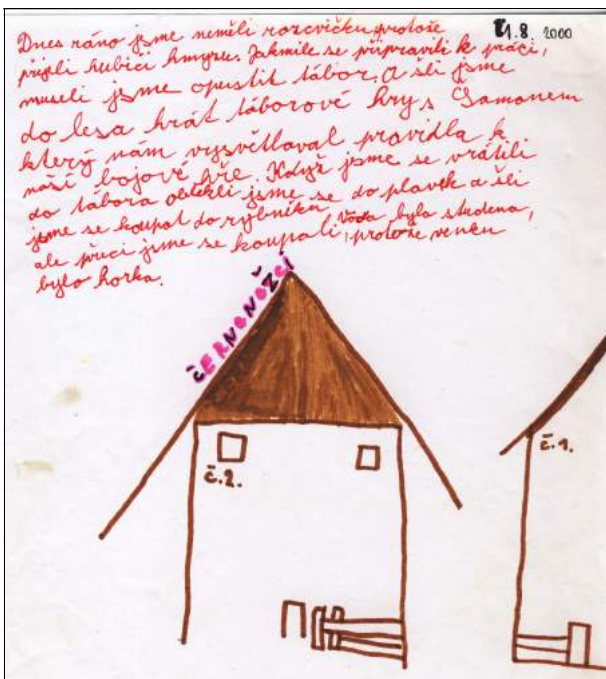 Dnes ráno jsme neměli rozcvičku protože
1.8. 2000
přijeli hubiči hmyzu. Jakmile se připravili k práci,
museli jsme opustit tábor. A šli jsme
do lesa hrát táborové hry s Samonem
který nám vysvětloval pravidla k
naší bojové hře. Když jsme se vrátili
do tábora oblekli jsme se do plavek a šli
jsme se koupat do rybníka, voda byla studena,
ale přeci jsme se koupali, protože venku
bylo horka.
ČERNONOŽCÍ
č.2.
č.1.